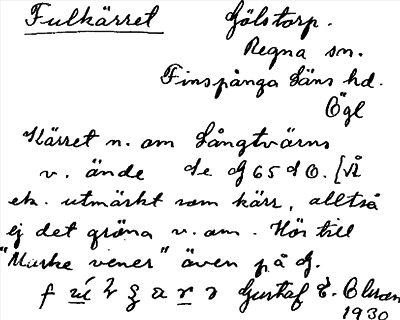 Fulkärret Gölstorp.
Regna sn.
Finspånga läns hd.
Ögl
Kärret n. om Långtvärns
v. ände de G 65 d O.
ek. utmärkt som kärr, alltså
ej det gröna n. om. Hör till
"Marke vener" även på G.
Gustaf E. Olsson
1930